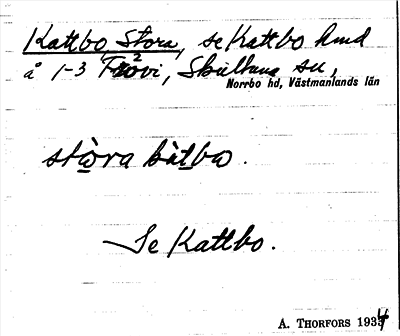 Kattbo, Stora, se Kattbo hmd
å 1-3 Frövi, Skultuna sn,
Norrbo hd, Västmanlands län
stòra kàtbω.
Se Kattbo.
A. THORFORS 1934